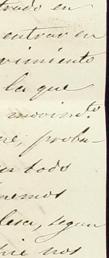 trado en
entrar en
vimiento
la que
movimto.
ne, proba-
en todo
nemos
lesa, segun
nos